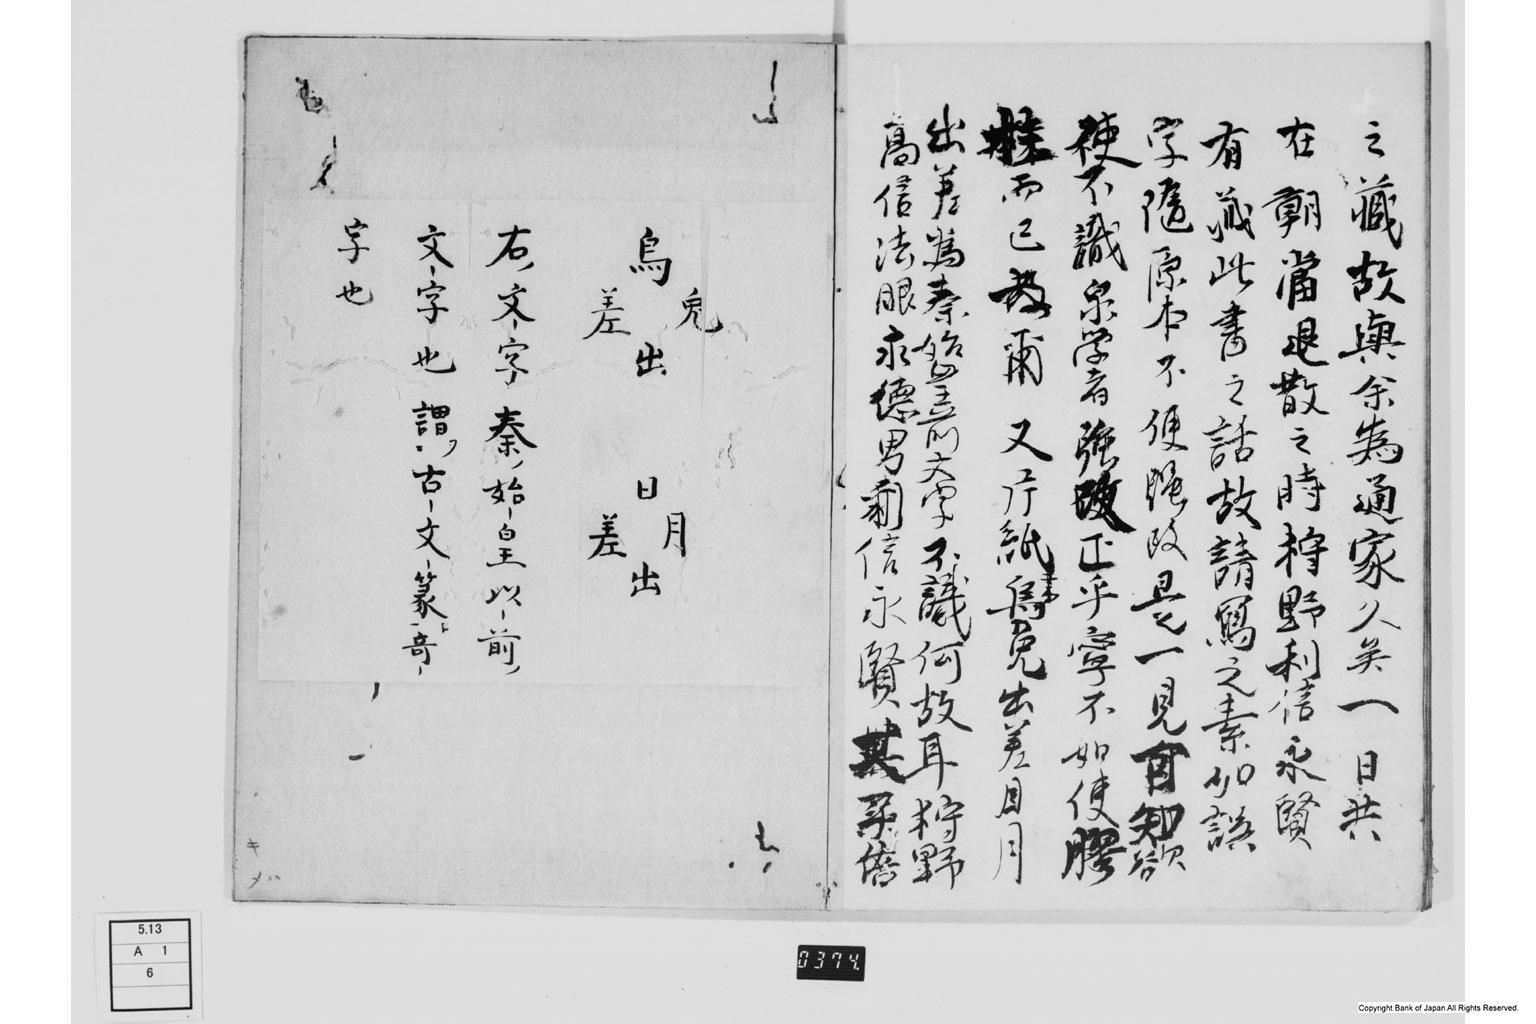 之藏故與余為通家久矣一日共
在朝當退散之時狩野利信永賢
有藏此書之話故請寫之素如誤
字隨原本不便賜改是一見自知欲
使不識泉学者強改正乎寧不如使膠
株而已 爾又片紙書烏兎出差日月
出差為秦始皇前文字不識何故耳狩野
高信法眼永德男利信永賢其系
烏
兎
差
出
日
月
差
出
右文字秦始皇以前
文字也謂古文篆奇
字也
キ
メハ
5.13
A 1
6
0374.
Copyright Bank of Japan All Rights Reserved.